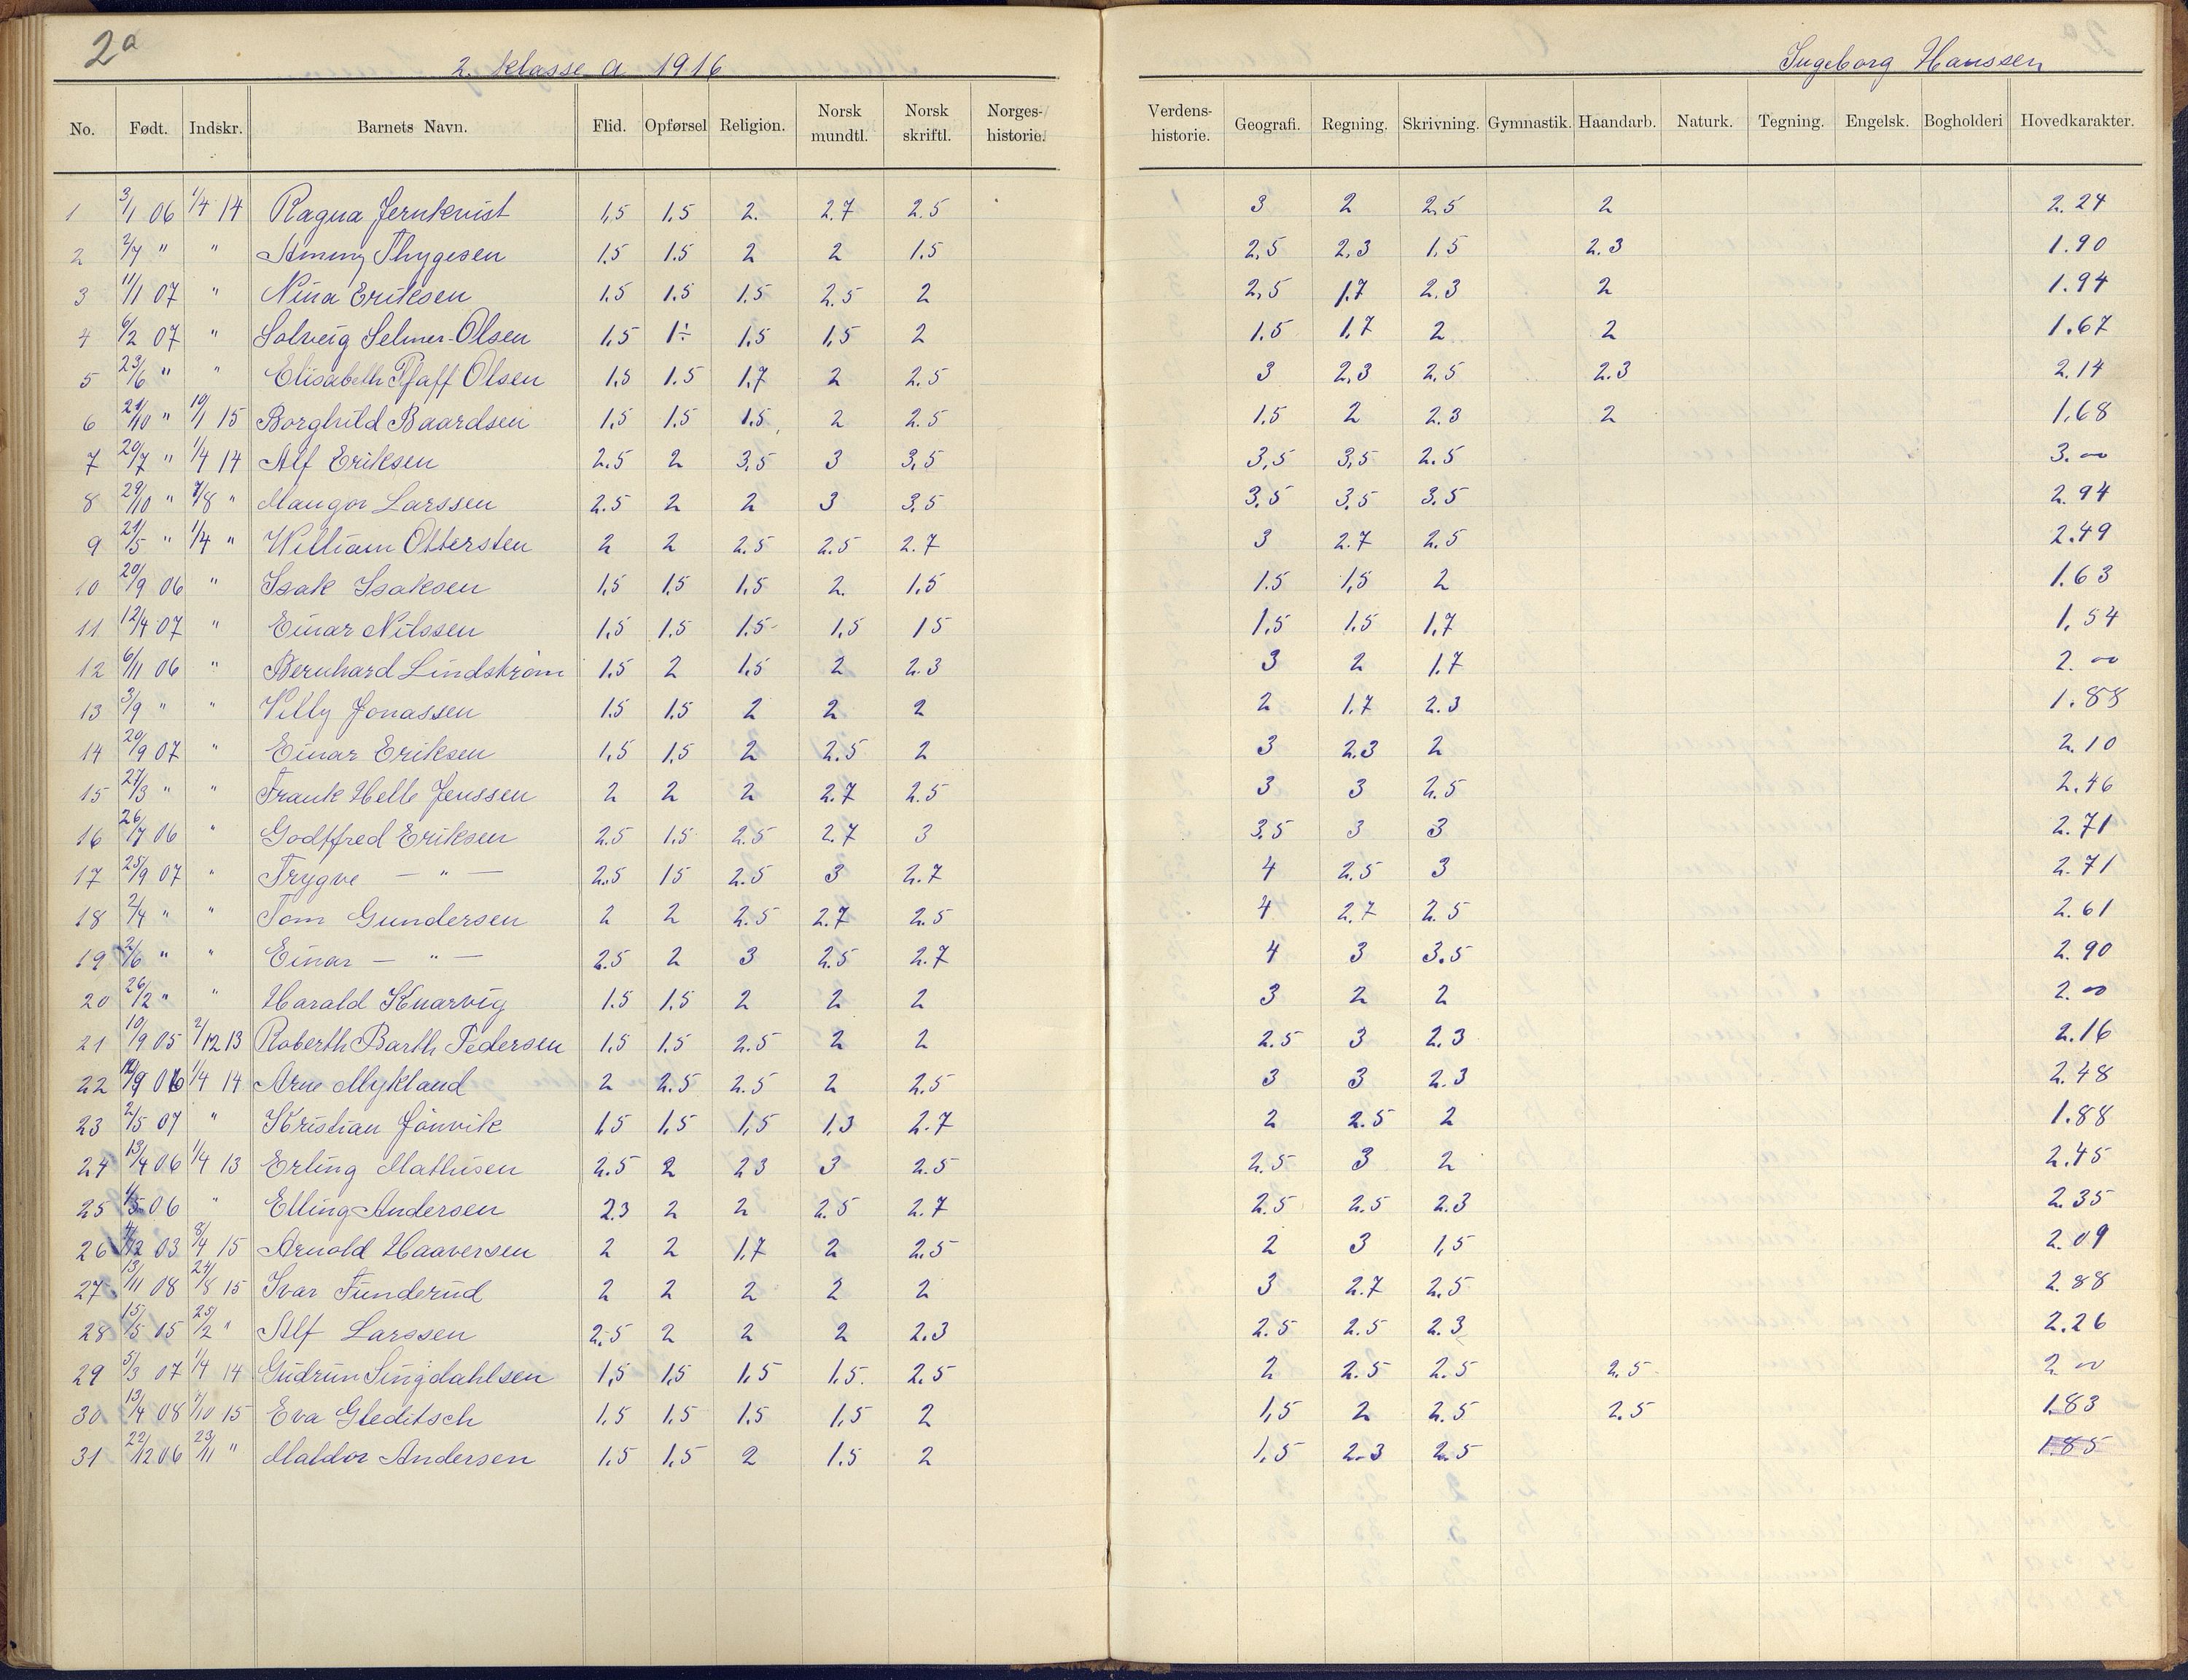 2a
2. klasse a 1916
Ingeborg Hanssen
No. Født. Indskr. Barnets Navn. Flid. Opførsel Religion. Norsk mundtl. Norsk skriftl. Norges-historie. Verdens-historie. Geografi. Regning. Skrivning. Gymnastik. Haandarb. Naturk. Tegning. Engelsk. Bogholderi Hovedkarakter.
1 3/1 06 1/4 14 Ragna Jernkvist 1,5 1,5 2. 2.7 2.5 3 2 2.5 2 2.24
2 2/7 " " Ammy Thygesen 1.5 1.5 2 2 1.5 2,5 2,3 1,5 2.3 1.90
3 11/1 07 " Nina Eriksen 1.5 1.5 1.5 2.5 2 2,5 1.7 2.3 2 1.94
4 6/2 07 " Solveig Selmer-Olsen 1,5 1÷ 1.5 1,5 2 1.5 1,7 2 2 1.67
5 23/6 " " Elisabeth Pfaff Olsen 1,5 1.5 1,7 2 2.5 3 2,3 2,5 2.3 2.14
6 21/10 " 19/1 15 Borghild Baardsen 1,5 1.5 1.5 2 2.5 1.5 2 2.3 2 1,68
7 20/7 " 1/4 14 Alf Eriksen 2.5 2 3,5 3 3,5 3,5 3,5 2.5 3.00
8 29/10 " 7/8 " Mangor Larssen 2.5 2 2 3 3,5 3.5 3.5 3.5 2.94
9 21/5 " 1/4 " William Ottersten 2 2 2.5 2.5 2.7 3 2.7 2,5 2.49
10 20/9 06 " Isak Isaksen 1,5 1,5 1,5 2. 1,5 1.5 1,5 2 1.63
11 12/4 07 " Einar Nilssen 1,5 1.5 1.5 1,5 15 1,5 1.5 1,7 1,54
12 6/11 06 " Bernhard Lindstrøm 1.5 2 1.5 2 2.3 3 2 1.7 2.00
13 3/9 " " Villy Jonassen 1.5 1.5 2 2 2 2 1.7 2.3 1.88
14 20/9 07 " Einar Eriksen 1,5 1,5 2 2.5 2 3 2.3 2 2.10
15 27/3 " " Frank Helle Jenssen 2 2 2 2.7 2.5 3 3 2.5 2.46
16 26/7 06 " Godtfred Eriksen 2.5 1.5 2.5 2.7 3 3,5 3 3 2.71
17 25/9 07 " Trygve — " — 2.5 15 2.5 3 2.7 4 2.5 3 2.71
18 2/4 " " Tom Gundersen 2 2 2.5 2.7 2.5 4 2.7 2.5 2.61
19 2/6 " " Einar — " — 2.5 2 3 2.5 2.7 4 3 3.5 2.90
20 26/2 " " Harald Knarvig 1.5 1.5 2 2 2 3 2 2 2.00
21 10/9 05 2/12 13 Roberth Barth Pedersen 1.5 1.5 2.5 2 2 2.5 3 2,3 2.16
22 /9 06 1/4 14 Arne Mykland 2 2.5 2.5 2 2.5 3 3 2.3 2.48
23 2/5 07 " Kristian Jönvik 1,5 1,5 1,5 1,3 2.7 2 2.5 2 1.88
24 13/4 06 1/4 13 Erling Mathisen 2.5 2 23 3 2.5 2.5 3 2 2.45
25 1/5 06 " Elling Andersen 2.3 2 2 2.5 2.7 2.5 2.5 2.3 2.35
26 4/12 03 8/4 15 Arnold Haaversen 2 2 1.7 2 2.5 2 3 1,5 2.09
27 13/11 08 24/8 15 Ivar Funderud 2 2 2 2 2 3 2.7 2,5 2.88
28 15/5 05 25/2 " Alf Larssen 2.5 2 2 2 2.3 2.5 2.5 2.3 2.26
29 5/3 07 1/4 14 Gudrun Singdahlsen 1,5 1,5 1.5 1.5. 2,5 2 2.5 2.5 2.5 2.00
30 13/4 08 7/10 15 Eva Gleditsch 1,5 1,5 1.5 1,5 2 1,5 2 2.5 2.5 1.83
31 22/12 06 23/11 " Haldor Andersen 1.5 1,5 2 1.5 2 1,5 2.3 2.5 1.85